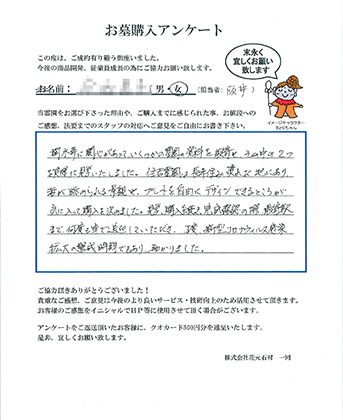 お墓購入アンケート
この度は、ご成約有り難う御座いました。
今後の商品開発、従業員成長の為にご協力お願い致します。
末永く
宜しくお願い
致します
お名前: (男・女) (担当者: 阪井 )
イメージキャラクター
当霊園をお選び下さった理由や、ご購入までに感じられた事、お値段への
ご感想、法要までのスタッフの対応へご意見をご自由にお書き下さい。
樹木葬に関心があっていくつかの霊園の資料を取寄せ、その中の2つ
を実際に見学いたしました。住吉霊園は長年住み慣れた地にあり、
海が眺められる景観や、プレートを自由にデザインできるところが
気に入って購入を決めました。見学、購入手続き、完成確認の際、最寄駅
まで何度も車で送迎していただき、丁度、新型コロナウィルス感染
拡大の懸威の時でもあり、助かりました。
ご協力頂きありがとうございました!
貴重なご感想、ご意見は今後のより良いサービス・技術向上のため活用させて頂きます。
お客様のご感想をイニシャルでHP等に使用させて頂く場合がございます。
アンケートをご返送頂いたお客様に、クオカード500円分を進呈いたします。
是非、宜しくお願い致します。
株式会社花元石材 一同